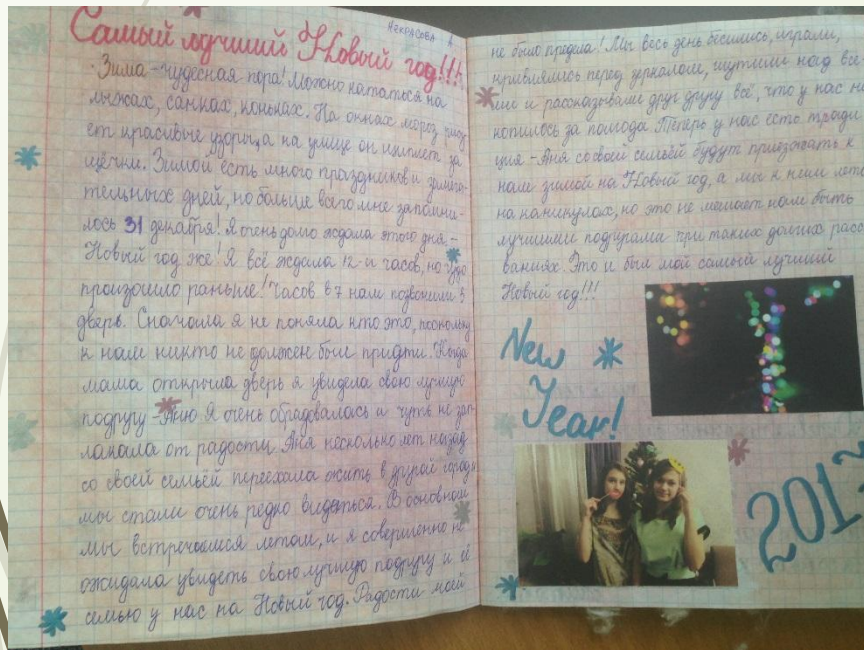 Некрасова А
Самый лучший Новый год!!!
Зима - чудесная пора! Можно кататься на
лыжах, санках, коньках. На окнах мороз рису
ет красивые узоры, а на улице он щиплет за
щёчки. Зимой есть много праздников и замеча-
тельных дней, но больше всего мне запомни-
лось 31 декабря! Я очень долго ждала этого дня -
Новый год же! Я всё ждала 12-и часов, но чудо
произошло раньше! Часов в 7 нам позвонили в
дверь. Сначала я не поняла кто это, поскольку
к нам никто не должен был придти. Когда
мама открыла дверь я увидела свою лучшую
подругу - Аню Я очень обрадовалась а чуть не зап-
лакала от радости. Аня несколько лет назад
со своей семьёй переехала жить в другой город и
мы стали очень редко видеться. В основном
мы встречаемся летом, и я совершенно не
ожидала увидеть свою лучшую подругу и её
семью у нас на Новый год. Радости моей
не было предела! Мы весь день бесились, играли,
кривлялись перед зеркалом, шутили над все-
ми и рассказывали друг другу всё, что у нас на
копилось за полгода Теперь у нас есть тради
ция - Аня со своей семьёй будут приезжать к
нам зимой на Новый год, а мы к ним летом
на каникулах, но это не мешает нам быть
лучшими подругами при таких долгих расс
ваниях. Это и был мой самый лучший
Новый год!!!
New
Year!
2017